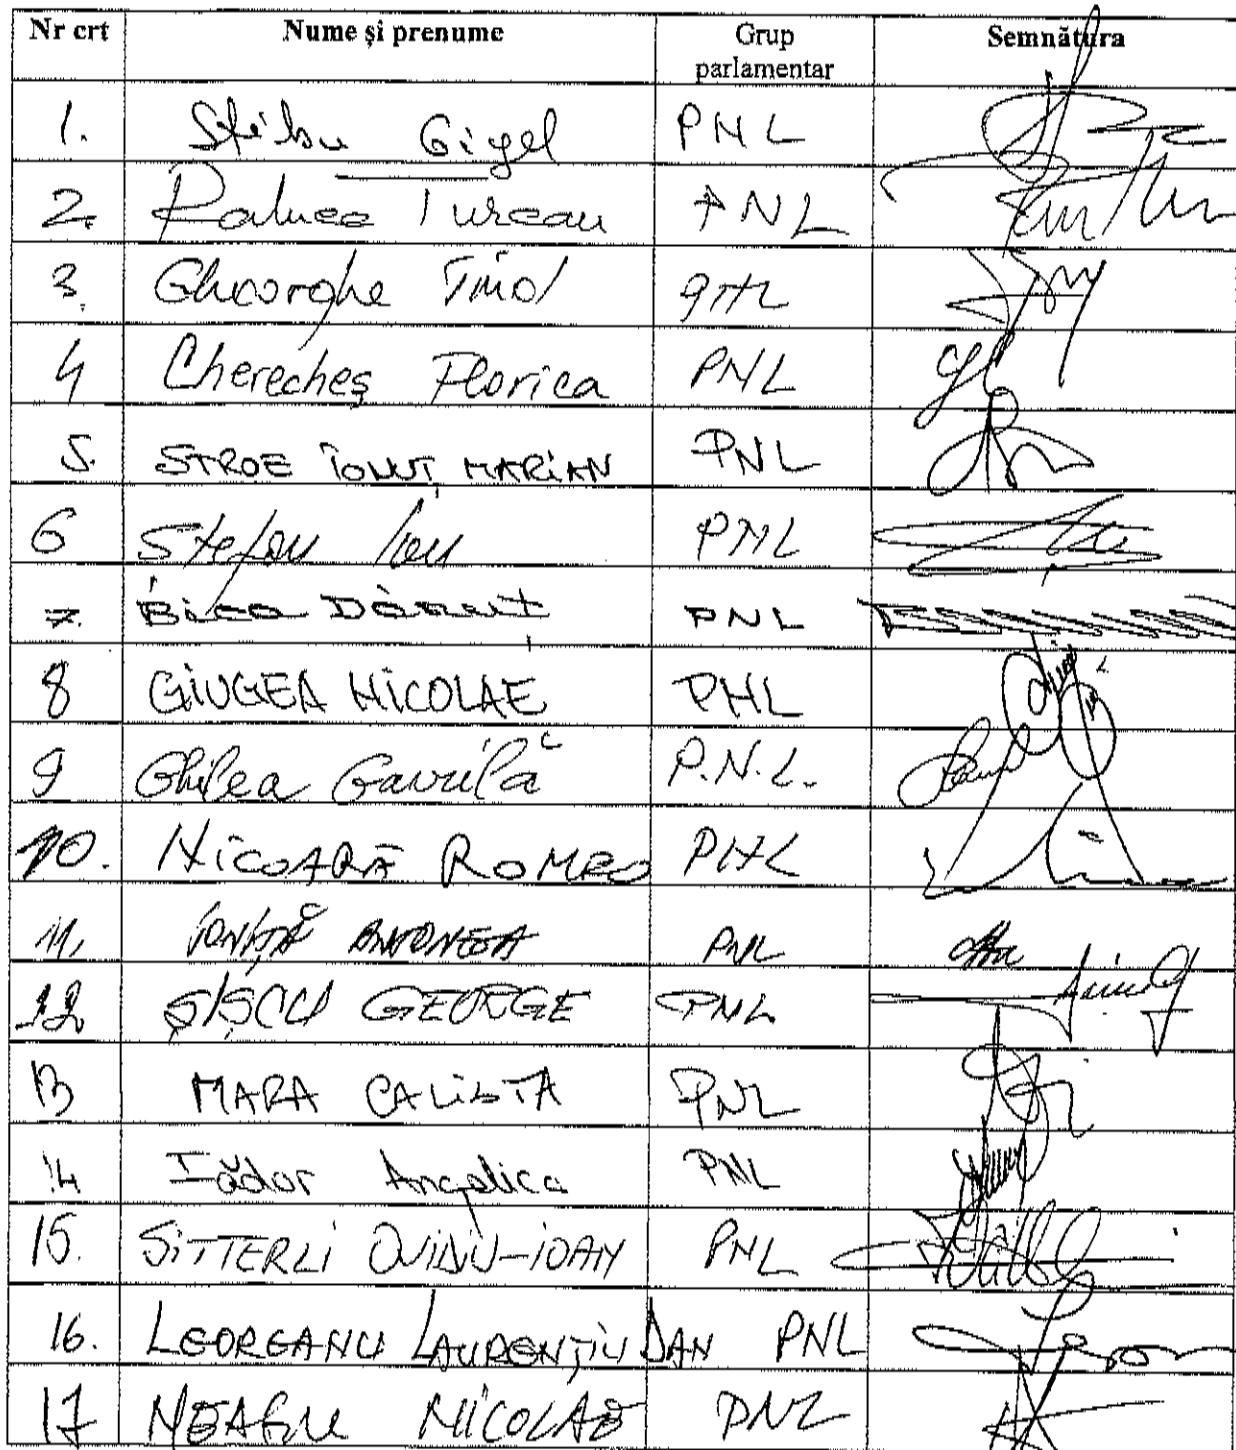 Nr crt Nume și prenume Grup parlamentar Semnătura
1. Știrbu Gigel PNL
2. Raluca Turcan PNL
3. Gheorghe Tinel PNL
4 Cherecheș Florica PNL
5. STROE IONUȚ MARIAN PNL
6 Ștefan Ion PNL
7. Bica Dănuț PNL
8 GIUGEA NICOLAE PNL
9 Ghilea Gavrilă P.N.L.
10. NICOARĂ ROMEO PNL
11. IONIȚĂ ANTONETA PNL
12 ȘIȘCU GEORGE PNL
13 MARA CALISTA PNL
14 Fădor Angelica PNL
15. SITTERLI OVIDIU-IOAN PNL
16. LEOREANU LAURENȚIU DAN PNL
17 NEAGU NICOLAE PNL